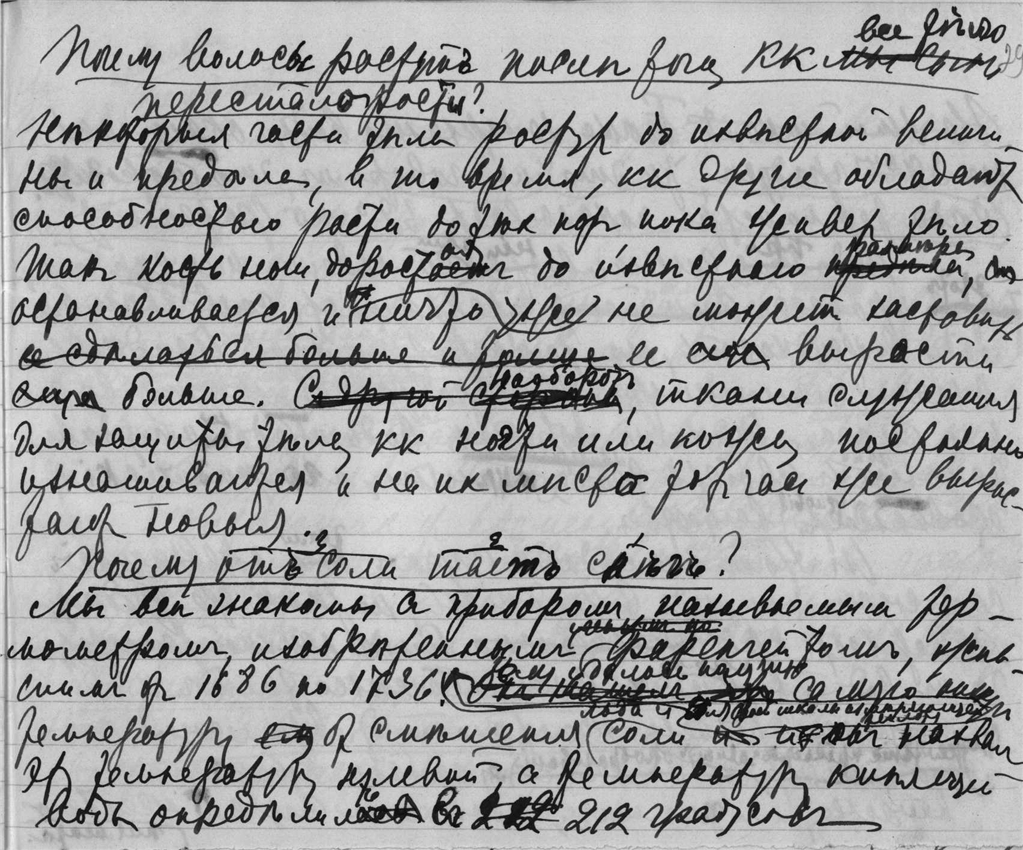 все тѣло
Почему волосы растутъ послѣ того кк мы сами 29
перестали рости?
Нѣкоторыя части тѣла растут до извѣстной величи
ны и предѣла, в то время, кк другие обладают
способностью рости до тѣх пор пока живет тѣло.
Такъ кость ноги, доростая до извѣстнаго размѣра,
останавливается и ничто уже не может заставить
сдѣлаться больше и больше ее вырости
больше. Наоборотъ, ткани служащия
для защиты тѣла, кк ногти или кожа, постоянно
изнашиваются и на их мѣсто тотчас же вырас-
тают новыя.
Почему отъ соли таетъ снѣгъ?
Мы всѣ знакомы с прибором, называемым тер-
мометром, изобрѣтенным Фаренгейтом, жив-
шим от 1686 по 1736. Ему удалось получить
самую низкую
температуру от смѣшения соли и льда
эту температуру нулевой, а температуру кипящей
воды опредѣлил в 212 градусовъ